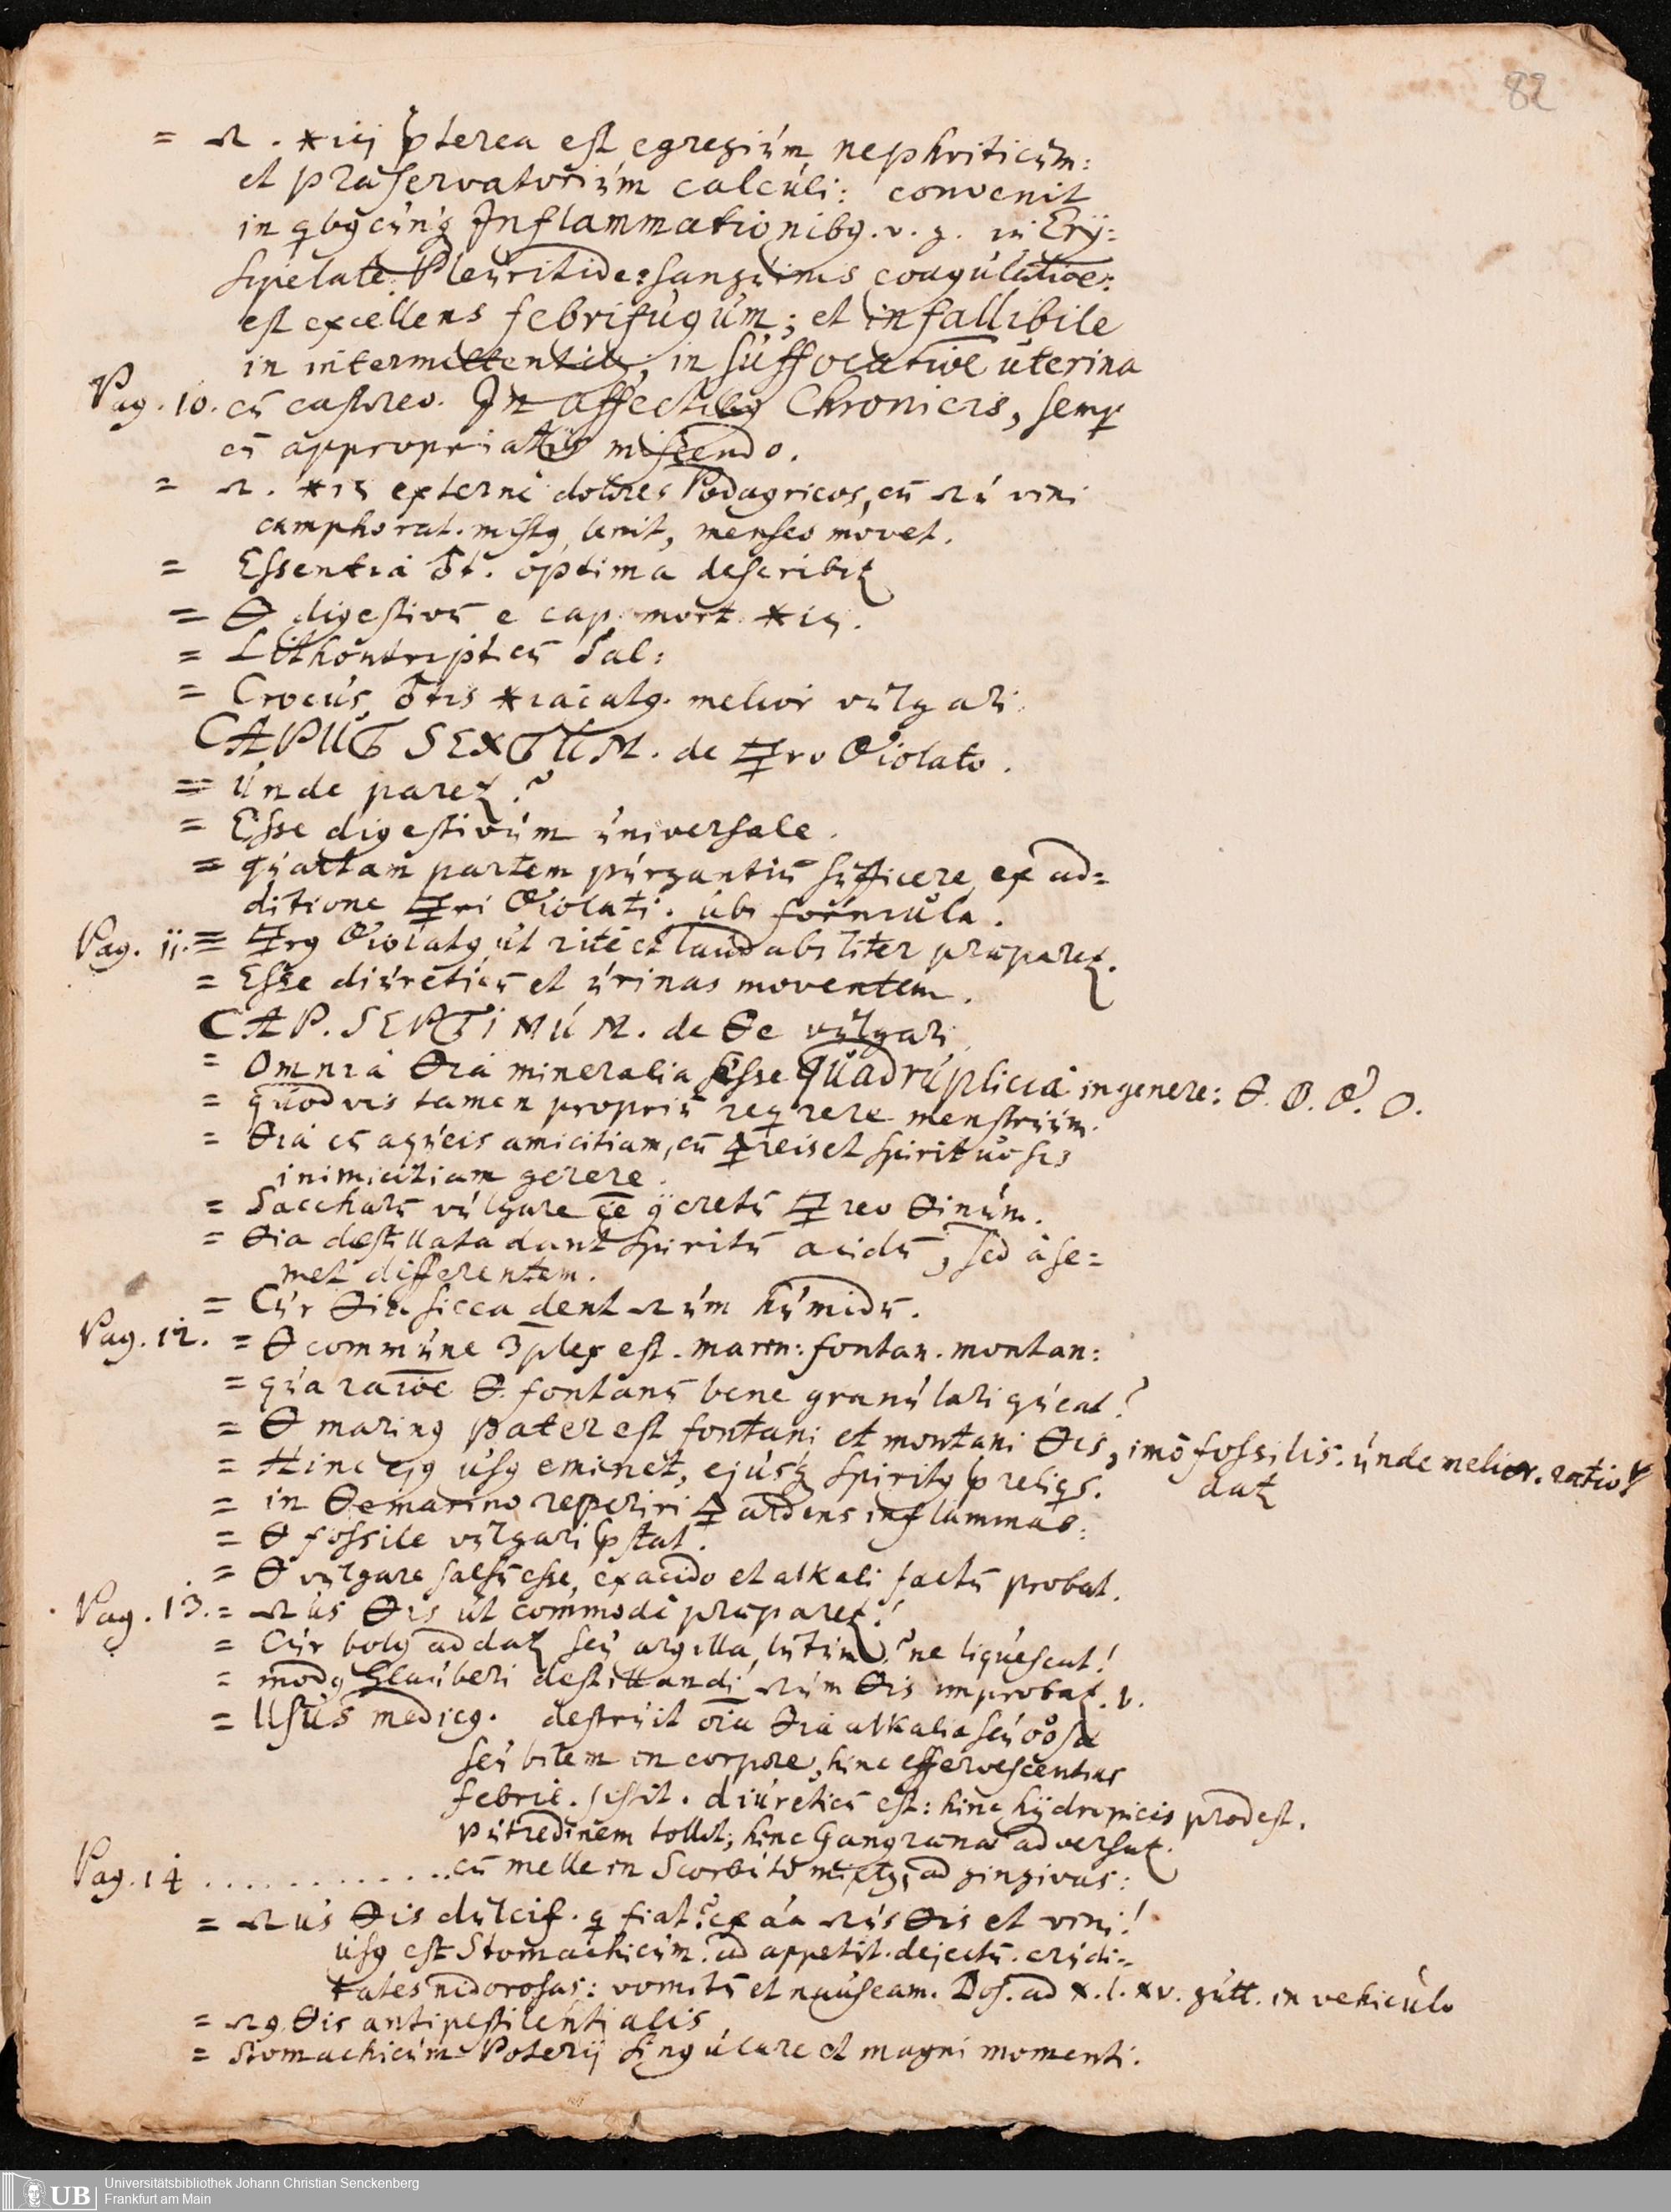 82
= . *ici pterea est egregiúm nephriticúm:
et præservatoriúm calcúli: convenit
in qbgcúnq Inflammationibg. v. g. in Erÿ:
sipelate. Pleúritide: sangúinis coagúlatioe:
est excellens febrifúgúm; et infallibile
in intermittentibg; in súffocatioe úterina
Pag. 10. cū castoreo. In affectibg Chronicis, semp
cū appropriatis miscendo.
= . *ici externè dolores Podagricos, cū ú vini
camphorat. mistg, lenit, menses movet.
= Essentia ♁t. optima describit
= 🜔 digestivū e cap. mort. *ici.
= Lithontripticū Sal:
= Crocús ♁tis *iacatg. melior vúlgari.
CAPUT SEXTUM. de 🜿ro 🜖iolato.
= Unde paret?
= Esse digestivúm úniversale.
= qúartam partem púrgantiū súfficere, ex ad=
ditione 🜿ri 🜖iolati. úbi formúla.
Pag. 11. = 🜿rg 🜖iolatg, út ritè et laúdabiliter præparet.
= Esse diúreticū et úrinas moventem.
CAP. SEPTIMÚM. de 🜔e vúlgari.
= Omnia 🜔ia mineralia esse qúadrúplicia in genere:
= qúodvis tamen propriū reqrere menstrúúm.
= 🜔ia cū aqúeis amicitiam, cū 🜍reis et spiritúosis
inimicitiam gerere.
= Saccharū vúlgare ee cretū 🜿reo 🜔inúm.
= 🜔ia destillata dant spiritū acidū, sed à se=
met differentem.
= Cúr 🜔ia sicca dent úm húmidū.
Pag. 12. = 🜔 commúne 3plex est. marin: fontan. montan:
= qúa raioe 🜔. fontanū bene granúlari qúeat?
= 🜔 maring pater est fontani et montani 🜔is, imò fossilis. únde melior. ratio
dat
= Hinc ejg úsg eminet, ejúsq spiritg p reliqs.
= in 🜔e marino reperiri 🜍 ardens inflammab:
= 🜔 fossile vúlgari pstat.
= 🜔 vúlgare salsū esse, ex acido et alkali factū probat.
Pag. 13. = ús 🜔is út commodè præparet!
= Cúr bolg addat seú argilla, lútúm? ne liqúescat!
= modg Glaúberi destillandi úm 🜔is improbat. v.
= Usús medicg. destrúit oīa 🜔ia alkalia seú
seú bilem in corpore, hinc effervescentias
febric. sistit. diúreticū est: hinc hÿdropicis prodest.
pútredinem tollit; hinc Gangrænæ adversat.
Pag. 14 . . . . . . . . . . . . . cū melle in Scorbúto mixtg, ad gingivas:
= ús 🜔is dúlcif. q fiat? ex áa ús 🜔is et vini!
úsg est Stomachicúm: ad appetit. dejectū. crúdi=
tates nidorosas: vomitū et naúseam. Dos. ad x. l. xv. gútt. in vehicúlo
= g 🜔is antipestilentialis
= Stomachicúm Poterij singúlare et magni momenti.
UB Universitätsbibliothek Johann Christian Senckenberg
Frankfurt am Main